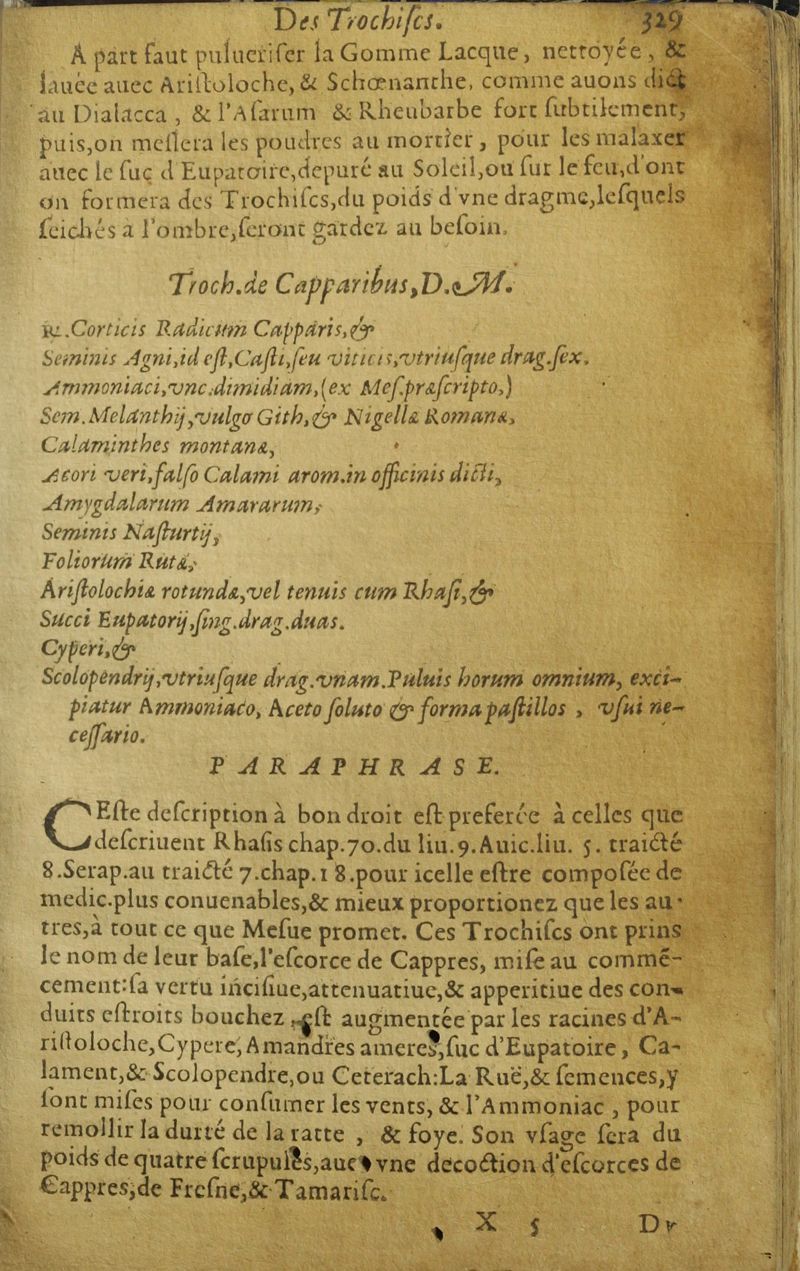 Des Trochiſcs. 329
A part faut puluerifer la Gomme Lacque, nettoyée, &
lauée auec Ariſtoloche, & Schœnanthe, comme auons dict
au Dialacca, & l'Aſarum & Rheubarbe fort ſubtilement,
puis,on meſlera les poudres au mortier, pour les malaxer
auec le ſuc d Eupatoire,depuré au Soleil,ou ſur le feu,d'ont
on formera des Trochiſcs,du poids d'vne dragme,leſquels
ſeichés a l'ombre,ſeront gardez au beſoin.
Troch.de Capparibus,D.M.
℞.Corticis Radicum Capparis,&
Seminis Agni,id eſt,Caſti,ſeu viticis,vtriuſque drag.ſex.
Ammoniaci,vnc.dimidiam,(ex Meſ.præſcripto,)
Sem.Melanthij,vulgo Gith,& Nigellæ Romanæ,
Calaminthes montanæ,
Acori veri,falſo Calami arom.in officinis dicti,
Amygdalarum Amararum,
Seminis Naſturtij,
Foliorum Rutæ,
Ariſtolochiæ rotundæ,vel tenuis cum Rhaſi,&
Succi Eupatorij,ſing.drag.duas.
Cyperi,&
Scolopendrij,vtriuſque drag.vnam.Puluis horum omnium, exci-
piatur Ammoniaco, Aceto ſoluto & forma paſtillos , vſui ne-
ceſſario.
PARAPHRASE.
CEſte deſcription à bon droit eſt preferée à celles que
deſcriuent Rhaſis chap.70.du liu.9.Auic.liu. 5. traicté
8.Serap.au traicté 7.chap.18.pour icelle eſtre compoſée de
medic.plus conuenables,& mieux proportionez que les au-
tres,à tout ce que Meſue promet. Ces Trochiſcs ont prins
le nom de leur baſe,l'eſcorce de Cappres, miſe au commē-
cement:ſa vertu inciſiue,attenuatiue,& apperitiue des con-
duits eſtroits bouchez ,eſt augmentée par les racines d'A-
riſtoloche,Cypere,Amandres ameres,ſuc d'Eupatoire, Ca-
lament,& Scolopendre,ou Ceterach:La Ruë,& ſemences,y
ſont miſes pour conſumer les vents, & l'Ammoniac , pour
remollir la durté de la ratte , & foye. Son vſage ſera du
poids de quatre ſcrupules,auec vne decoction d'eſcorces de
Cappres,de Freſne,& Tamariſc.
X 5 Dr